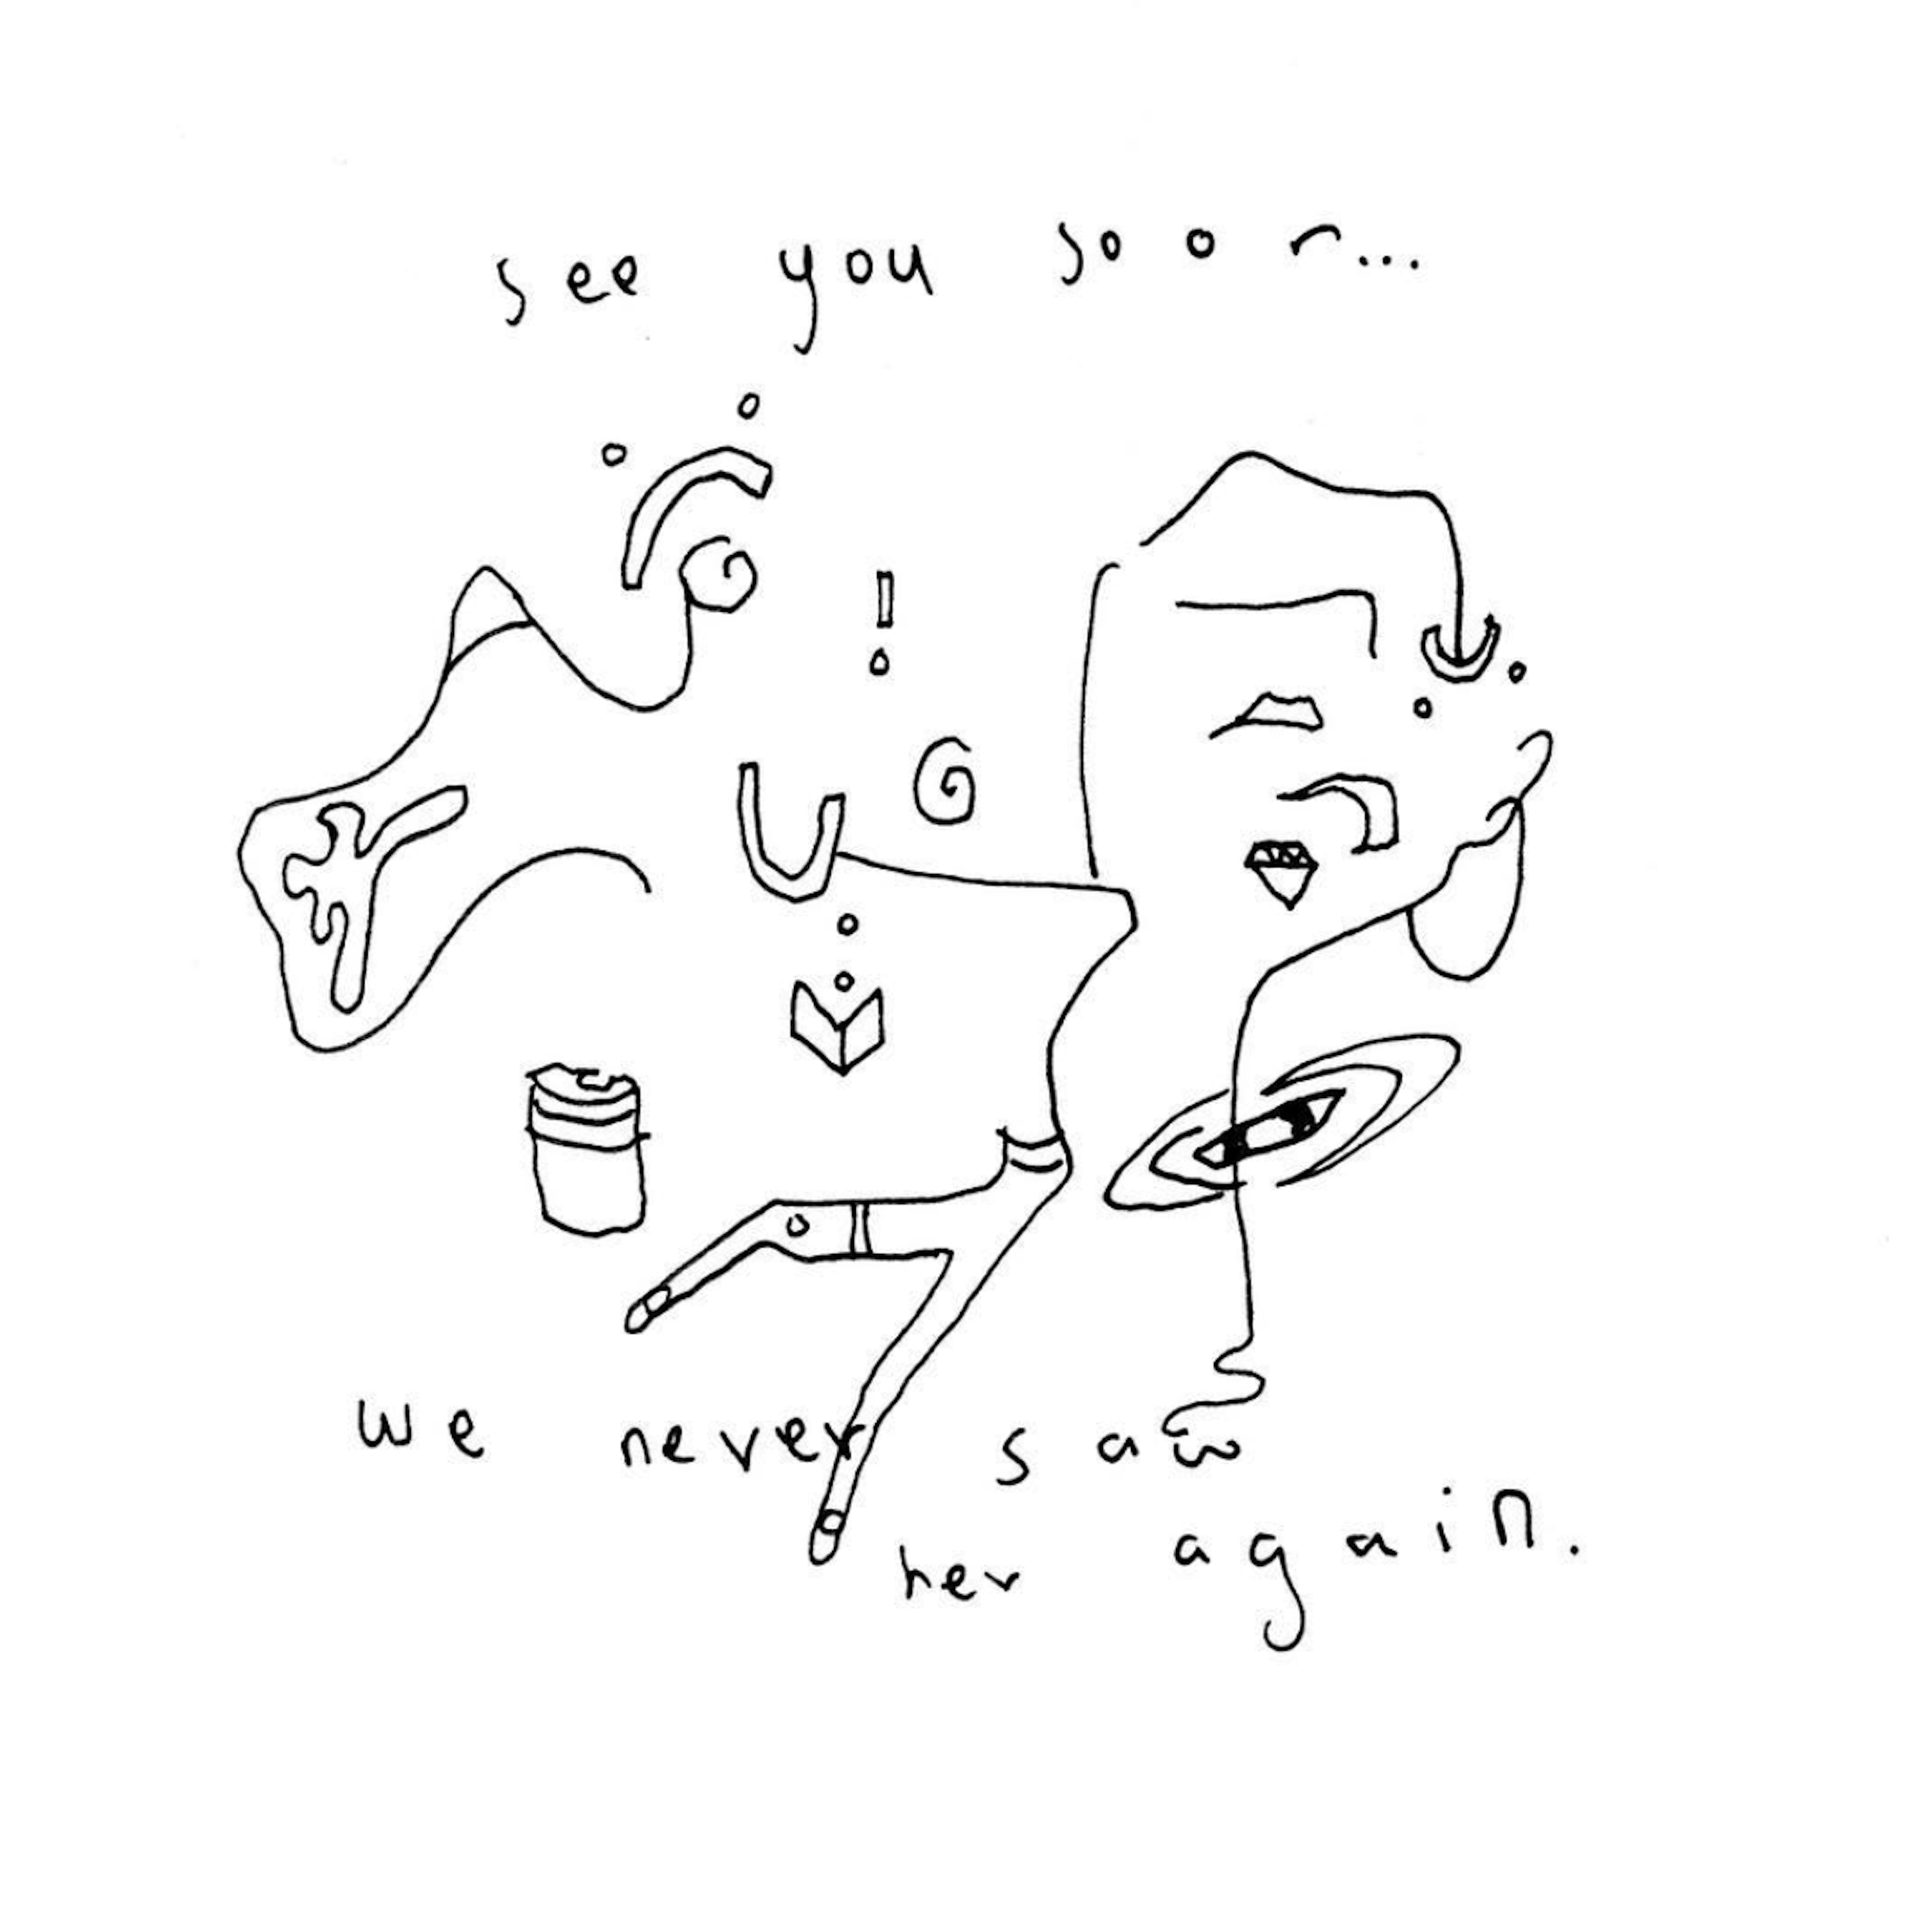 see you soor...
we never saw
her again.